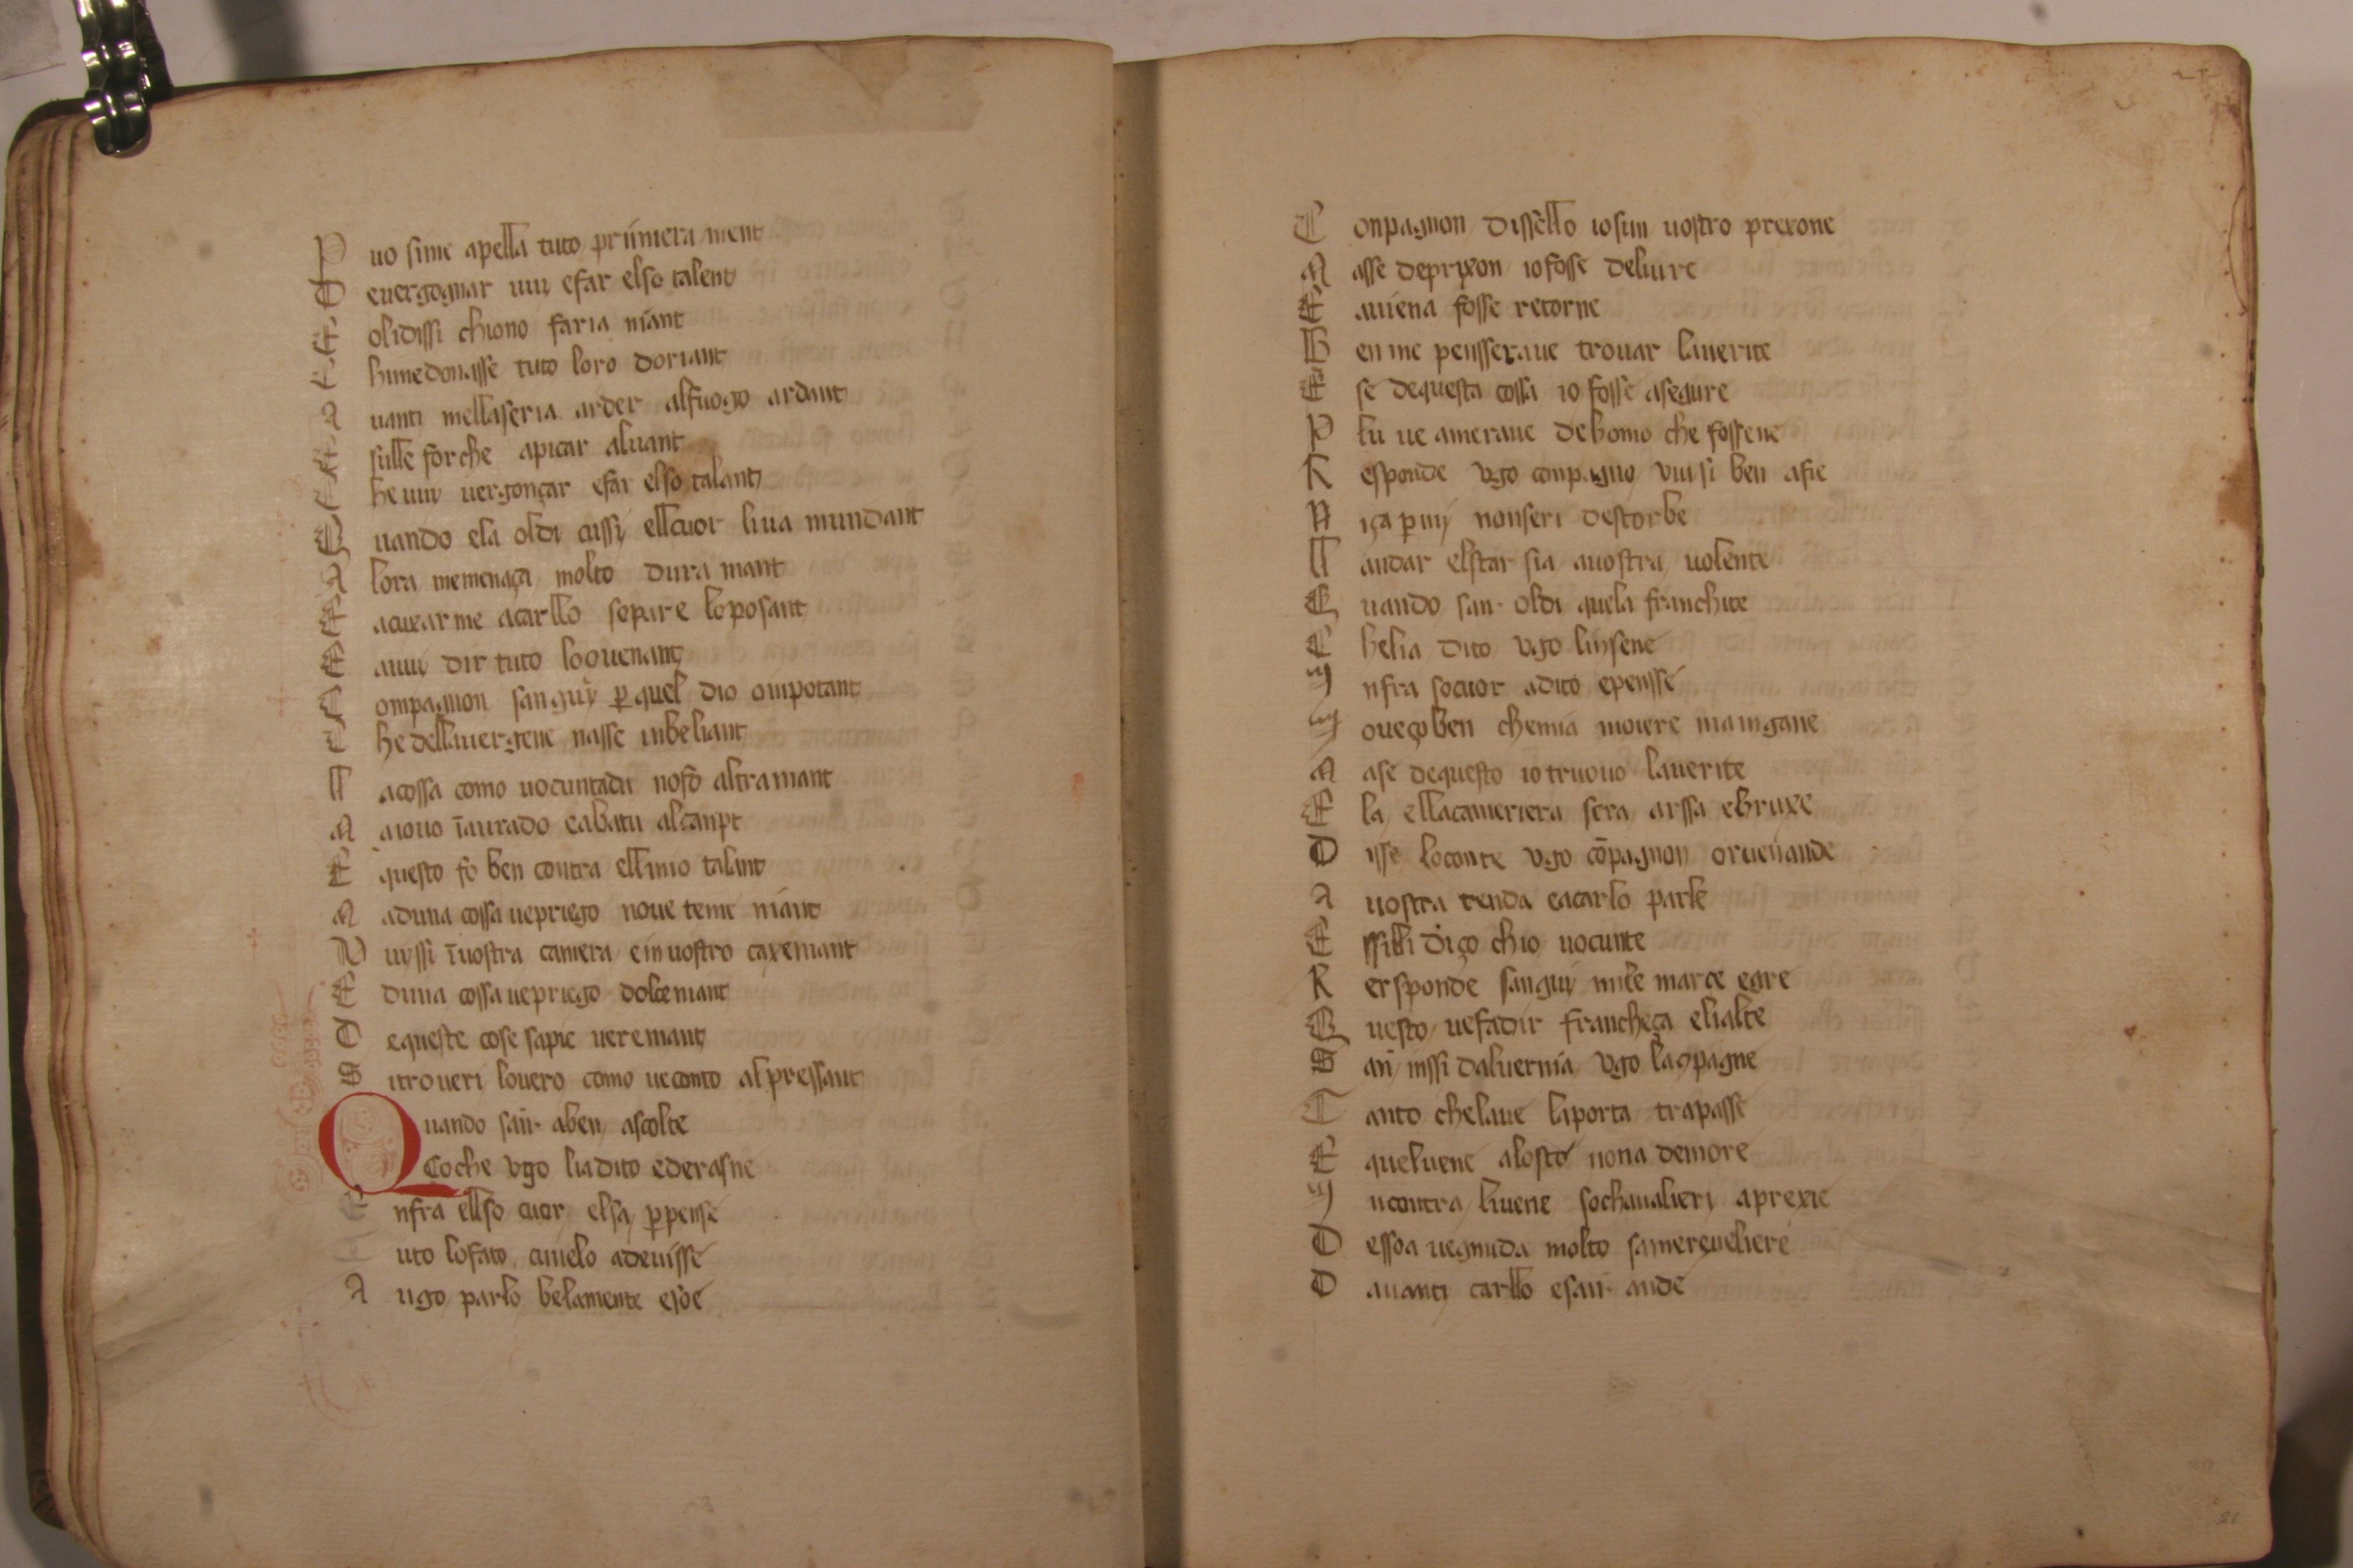 P uo sime apella tuto priimera ment
D euergognar uuj efar elso talent
E olidissi chiono faria niant
C himedonasse tuto loro doriant
A uanti mellaseria arder alfuogo ardant
E sulle forche apicar aluant
C he uuj uergonçar efar elso talant
Q uando ela oldi cussj ellcuor liua mundant
A lora memenaça molto dura mant
E acuxarme acarllo separe loposant
E auuj dir tuto loouenant
C ompagnon sanguj ꝑ quel dio onipotant
C he dellauergene nasse inbeliant
L acossa como uocuntada nofo altramant
M aiouo īaurado eabatu alcanpt
E questo fo ben contra ellmio talant
M aduna cossa uepriego noue teme niant
V uyssi īuostra camera einuostro caxemant
E duna cossa uepriego dolcemant
D equeste cose sapie ueremant
S itroueri louero como ueconto alpressant
Quando san· aben ascolte
Coche vgo liadito ederasne
E nfra ellso cuor elsa ꝑpense
T uto lofato cuuelo adeuisse
A ugo parlo belamente esoe
C onpagnon dissello iosun uostro prexone
M asse deprixon iofosse deliure
E auiena fosse retorne
B en me pensseraue trouar lauerite
E se dequesta cossa io fosse asegure
P lu ue ameraue dehomo che fossene
R esponde vgo conpagno vuisi ben afie
N iça ꝑ mj nonseri destorbe
L andar elstar sia auostra uolente
Q uando san· oldi quela franchite
C helia dito vgo linsene
I nfra socuor adito epensse
I oueço ben chemia moiere maingane
M ase dequesto io truouo lauerite
E la ellacameriera sera arssa ebruxe
D isse loconte vgo cōpagnon oruenande
A uostra tenda eacarlo parle
E ssilli diço chio uocunte
R ersponde sanguj mille marce egre
Q uesto uefadir francheça elialte
S an inssi daluernia vgo lacpagne
T anto chelaue laporta trapasse
E queluene alosto nona demore
I ncontra liuene sochaualierj aprexie
D essoa uegnuda molto samereueliere
D auantj carllo esan· ande